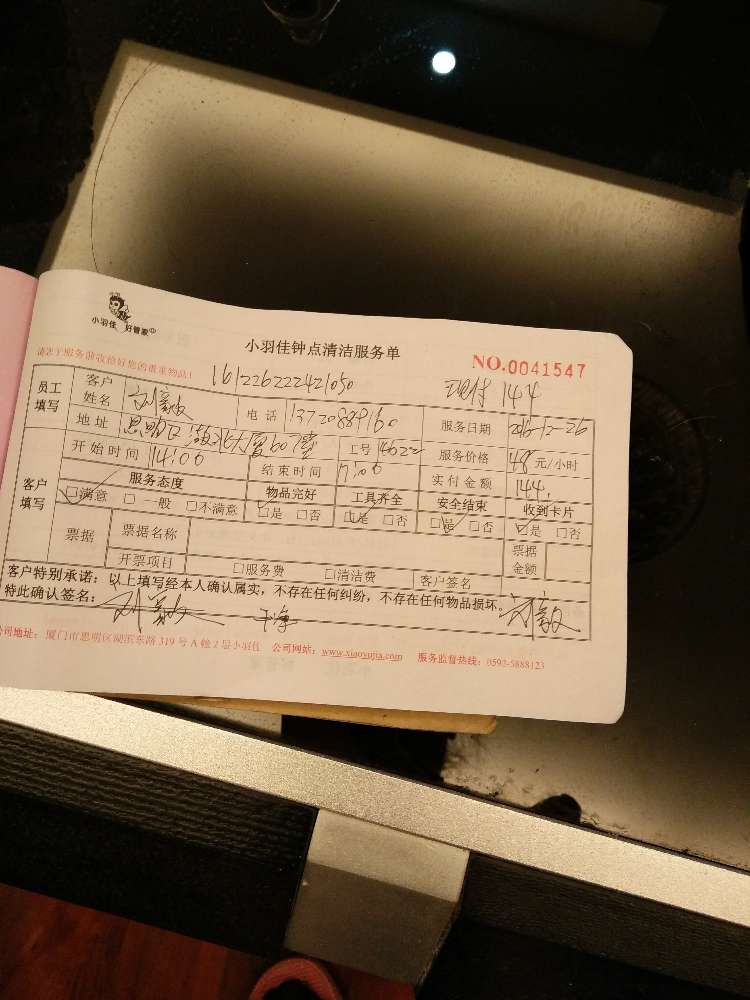 小羽佳 好管家
小羽佳钟点清洁服务单
NO.0041547
161226222421050
现付 144
员工填写 客户姓名 刘毅敏 电话 13720889160 服务日期 2016-12-26
地址 思明区湖 大厦607 工号 服务价格 48 元/小时
客户填写 开始时间 14:00 结束时间 17:00 实付金额 144.
服务态度 物品完好 工具齐全 安全结束 收到卡片
□满意 □一般 □不满意 □是 □否 □是 □否 □是 □否 □是 □否
票据 票据名称 票据金额
开票项目 □服务费 □清洁费 客户签名
客户特别承诺：以上填写经本人确认属实，不存在任何纠纷，不存在任何物品损坏。
特此确认签名： 干净
公司地址：厦门市思明区湖滨东路319号A幢2层小羽佳 公司网站：www.xiaoyujia.com 服务监督热线：0592-5888123